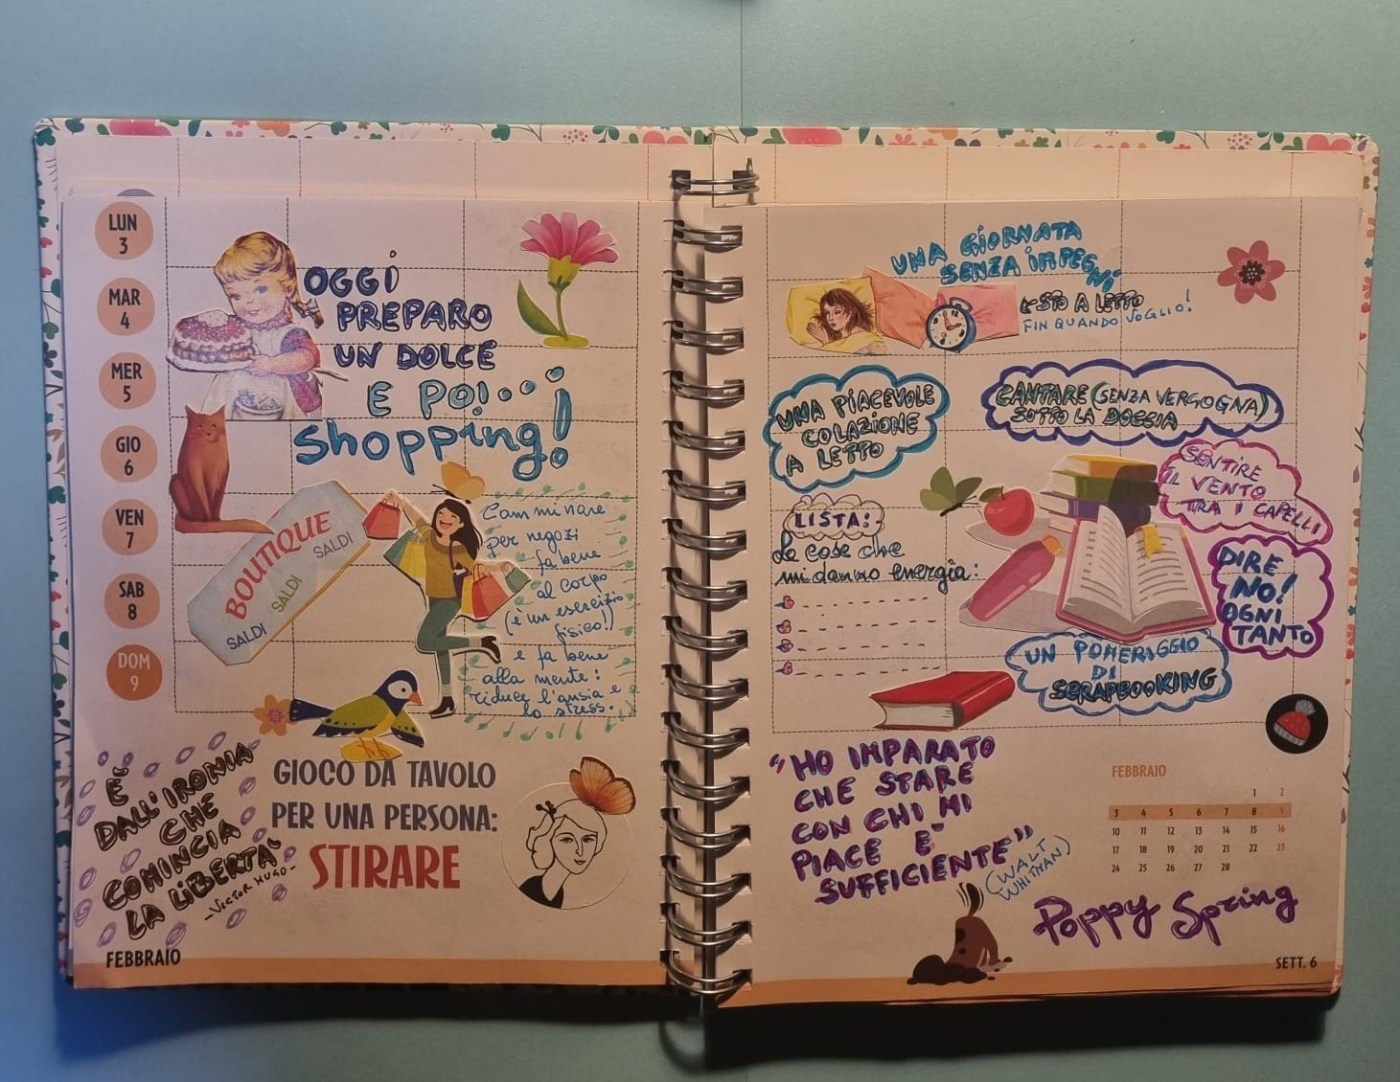 LUN
3
MAR
4
MER
5
GIO
6
VEN
7
SAB
8
DOM
9
OGGI
PREPARO
UN DOLCE
E POI...
shopping!
BOUTIQUE
SALDI
SALDI
SALDI
Camminare
per negozi
fa bene
al corpo
(è un esercizio
fisico!)
e fa bene
alla mente:
riduce l'ansia e
lo stress.
È
DALL'IRONIA
CHE
COMINCIA
LA LIBERTA'
-VICTOR HUGO-
GIOCO DA TAVOLO
PER UNA PERSONA:
STIRARE
FEBBRAIO
UNA GIORNATA
SENZA IMPEGNI
STO A LETTO
FIN QUANDO VOGLIO!
UNA PIACEVOLE
COLAZIONE
A LETTO
CANTARE (SENZA VERGOGNA)
SOTTO LA DOCCIA
SENTIRE
IL VENTO
TRA I CAPELLI
LISTA:
Le cose che
mi danno energia:
DIRE
NO!
OGNI
TANTO
UN POMERIGGIO
DI
SCRAPBOOKING
"HO IMPARATO
CHE STARE
CON CHI MI
PIACE E'
SUFFICIENTE"
(WALT
WHITMAN)
FEBBRAIO
1 2
3 4 5 6 7 8 9
10 11 12 13 14 15 16
17 18 19 20 21 22 23
24 25 26 27 28
Poppy Spring
SETT. 6